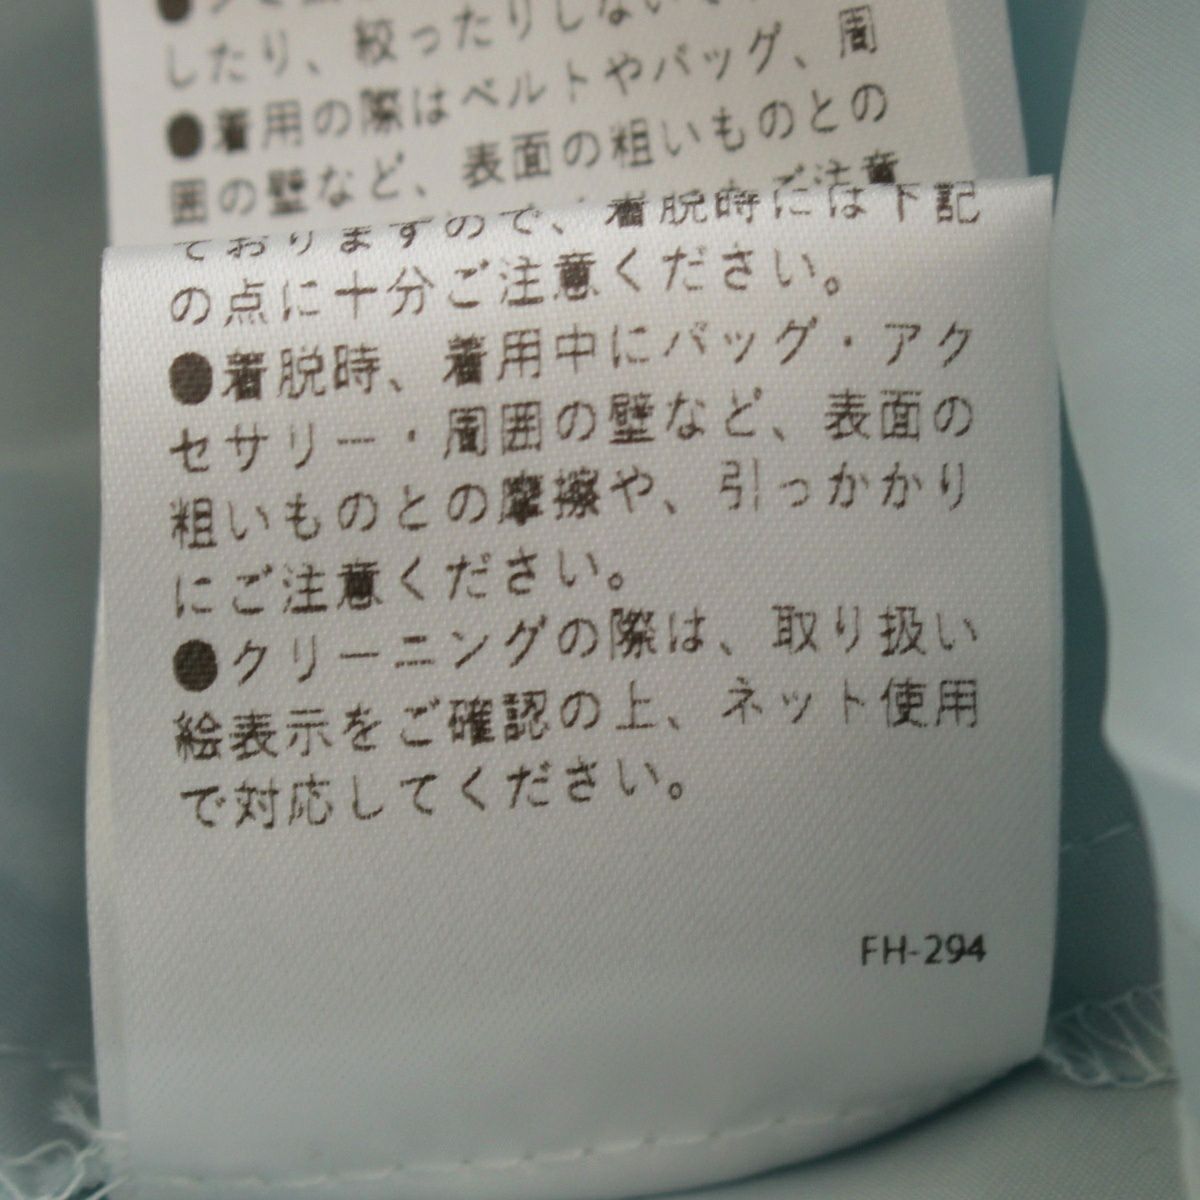 したり、絞ったりしないで
●着用の際はベルトやバッグ、周
囲の壁など、表面の粗いものとの
ご注意
ておりますので、着脱時には下記
の点に十分ご注意ください。
●着脱時、着用中にバッグ・アク
セサリー・周囲の壁など、表面の
粗いものとの摩擦や、引っかかり
にご注意ください。
●クリーニングの際は、取り扱い
絵表示をご確認の上、ネット使用
で対応してください。
FH-294